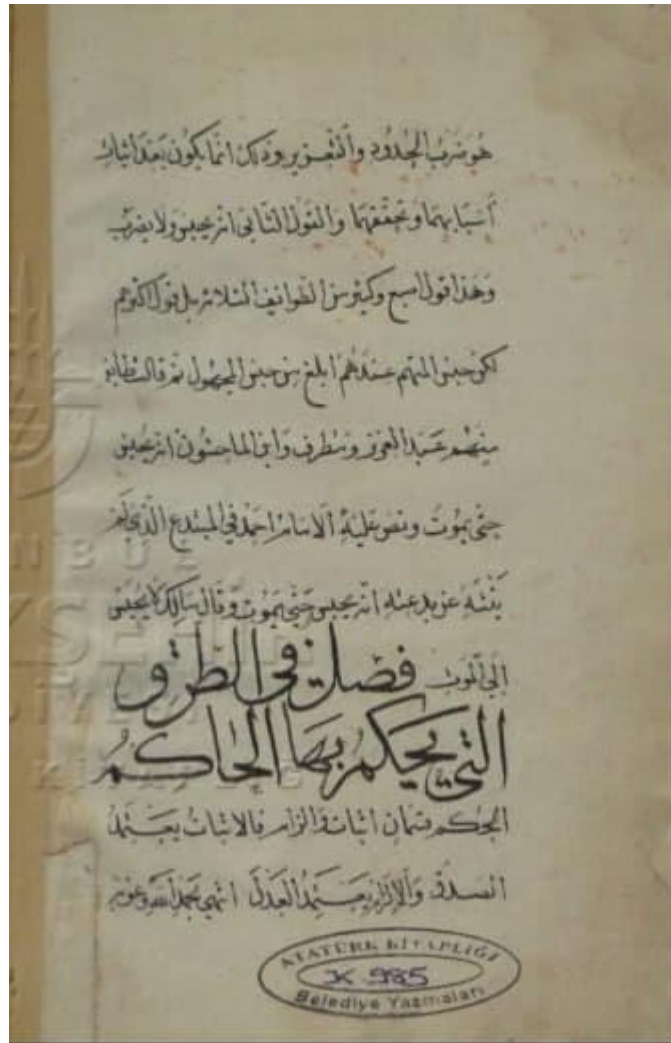 هو ضرب الحدود والتعزير وذلك انما يكون بعد اثبات
أسبابهما وتحققهما والقول الثاني انه يحبس ولا يضرب
وهذا قول اصبغ وكثير من الطوائف الثلاثة بل قول اكثرهم
لكن حبس المتهم عندهم ابلغ من حبس المجهول ثم قالت طايفة
منهم عبد العزيز ومطرف وابن الماجشون انه يحبس
حتى يموت ونص عليه الامام احمد في المبتدع الذي لم
ينته عن بدعته انه يحبس حتى يموت وقال مالك لا يحبس
الى الموت فصل في الطرق
التي يحكم بها الحاكم
الحكم قسمان اثبات والزام فالاثبات يعتمد
الصدق والالزام يعتمد العدل انتهى بحمد الله وعونه
ATATÜRK KİTAPLIĞI
K.985
Belediye Yazmaları